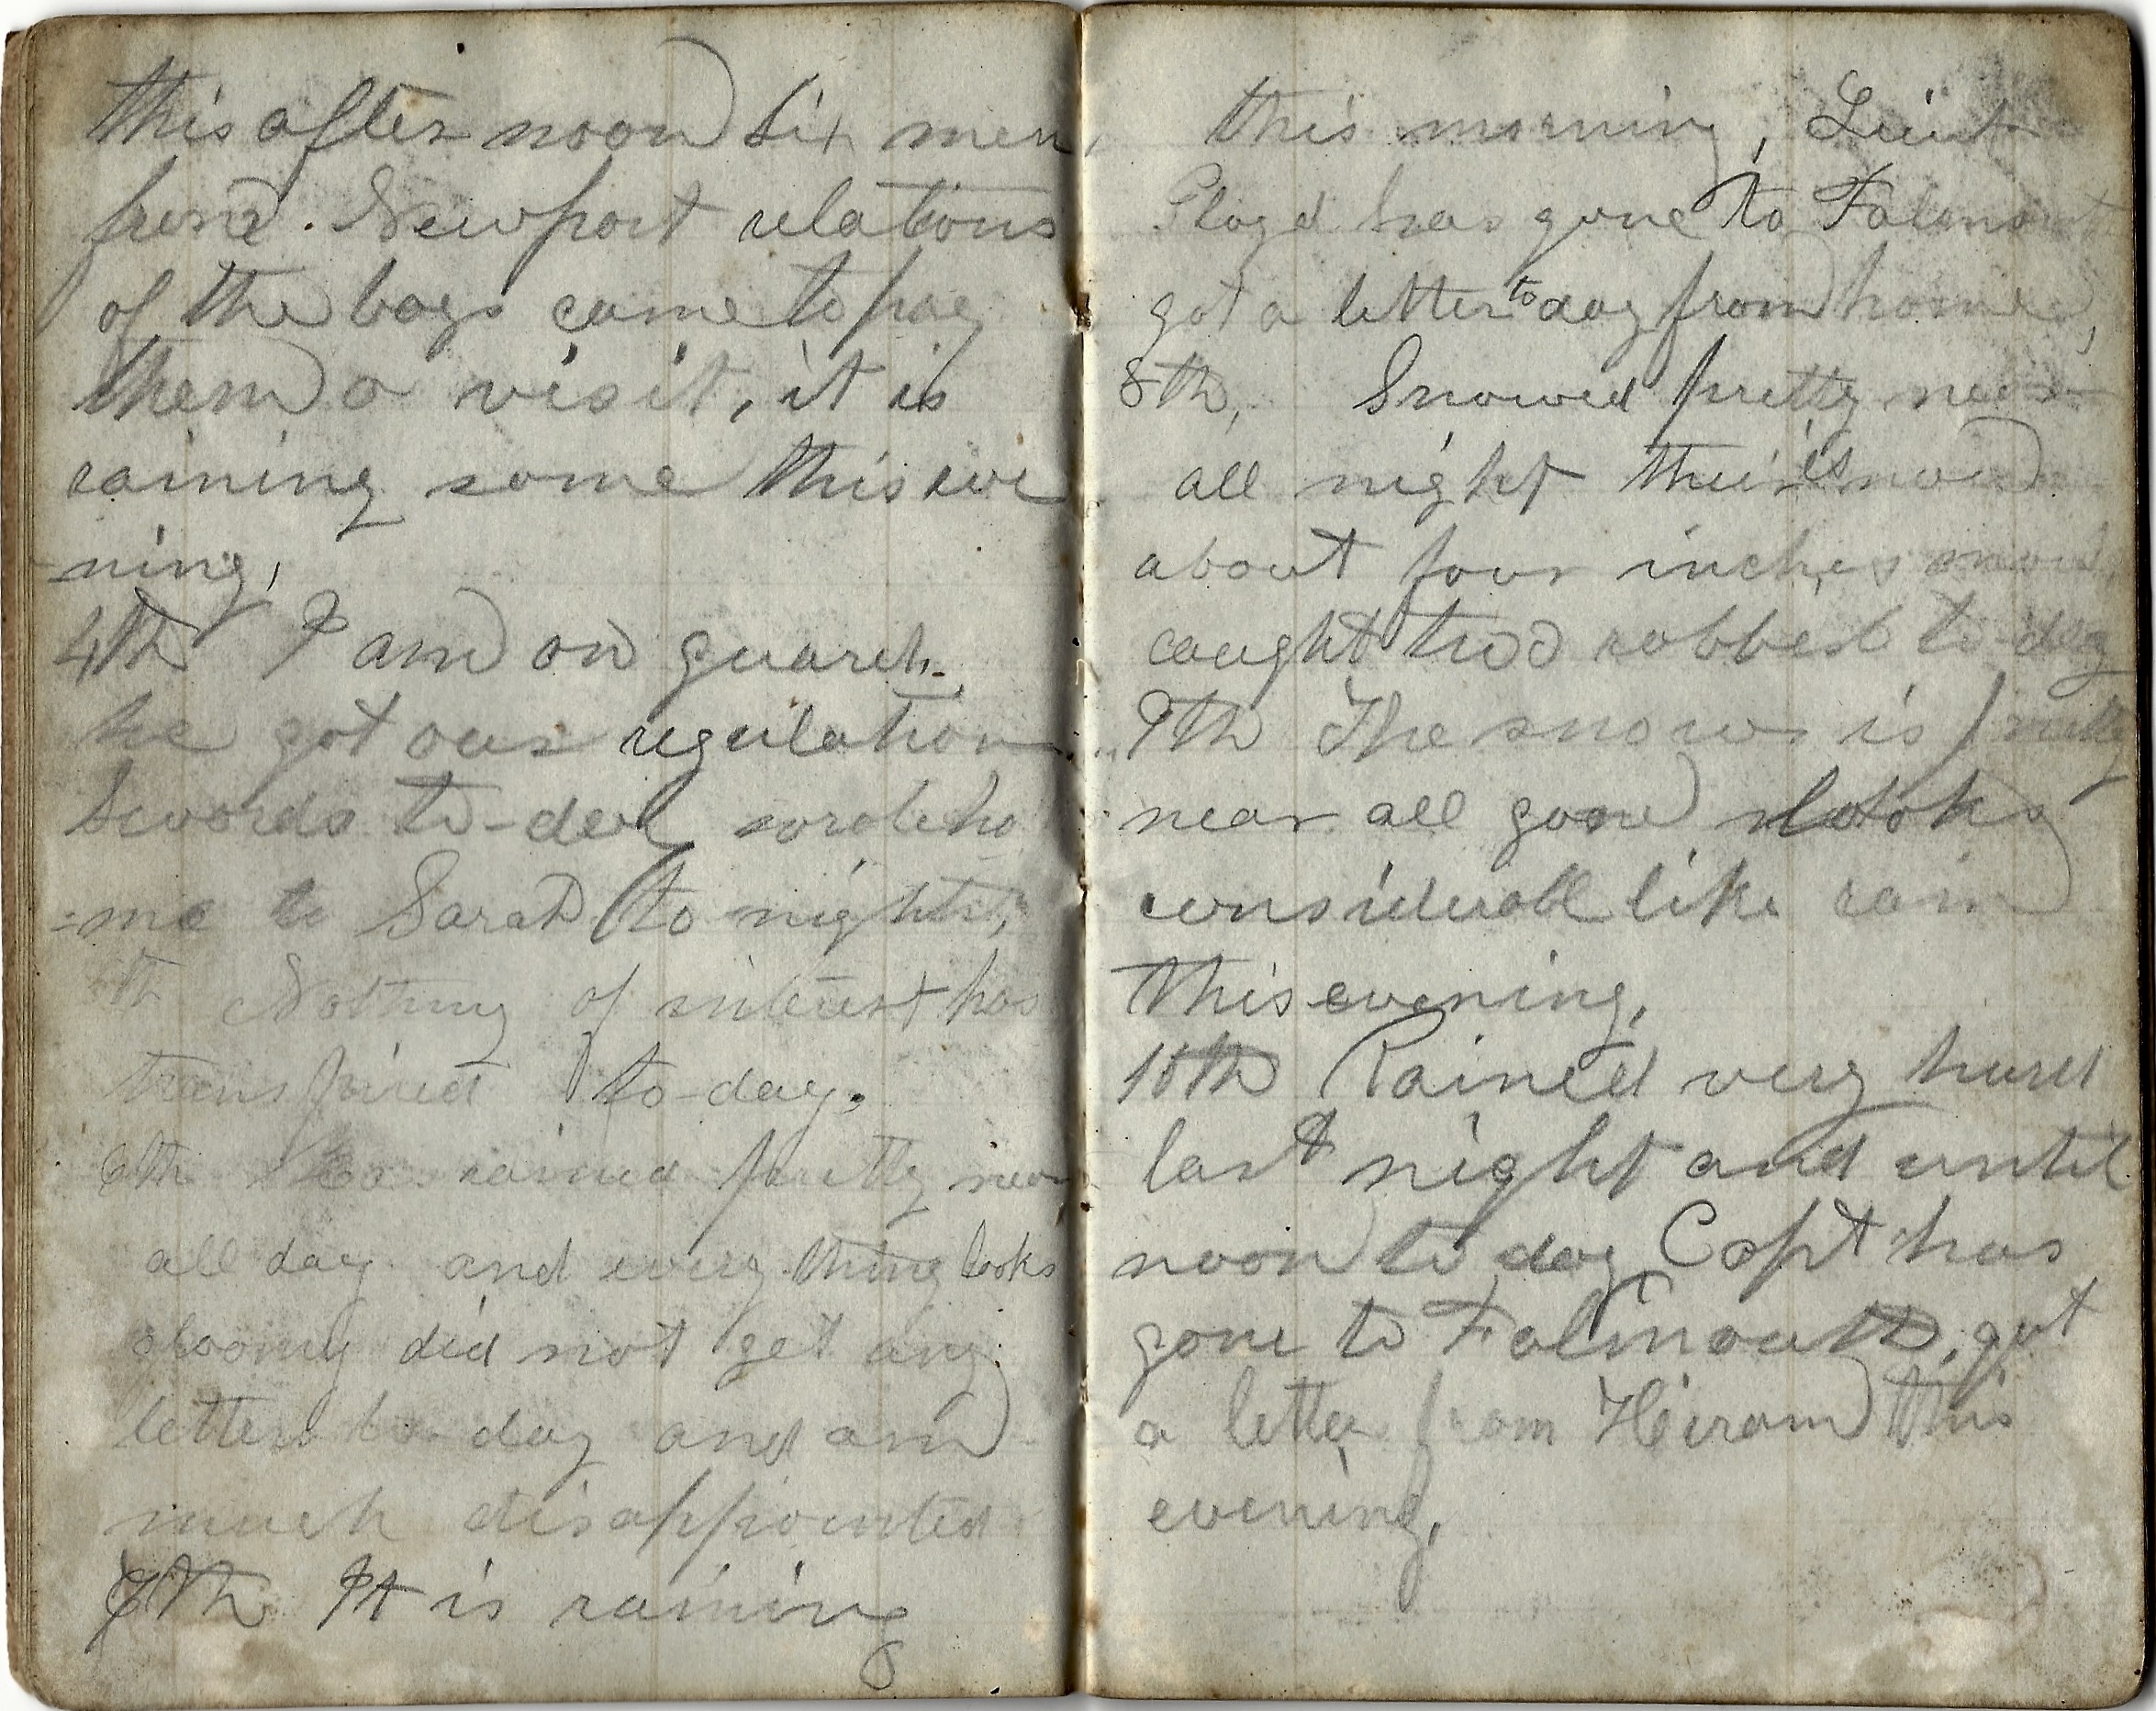 this after noon six men
from Newport relations
of the boys came to pay
them a visit, it is
raining some this eve
ning,
4th I am on guard.
we got our regulation
swords to-day wrote ho
=me to Sarah to night,
th Nothing of interest has
transpired to-day.
6th rained pretty near
all day and every thing looks
gloomy did not get any
letters to-day and am
much disappointed
7th It is raining
this morning, Lieut
Floyd has gone to Falmout
got a letter to day from home,
8th, Snowed pretty near
all night their is snow
about four inches
caught two to-day
9th The snow is pretty
near all gone looks
considerabl like rain
this evening,
10th Rained very hard
last night and until
noon to day Capt has
gone to Falmouth, got
a letter from Hiram this
evening,